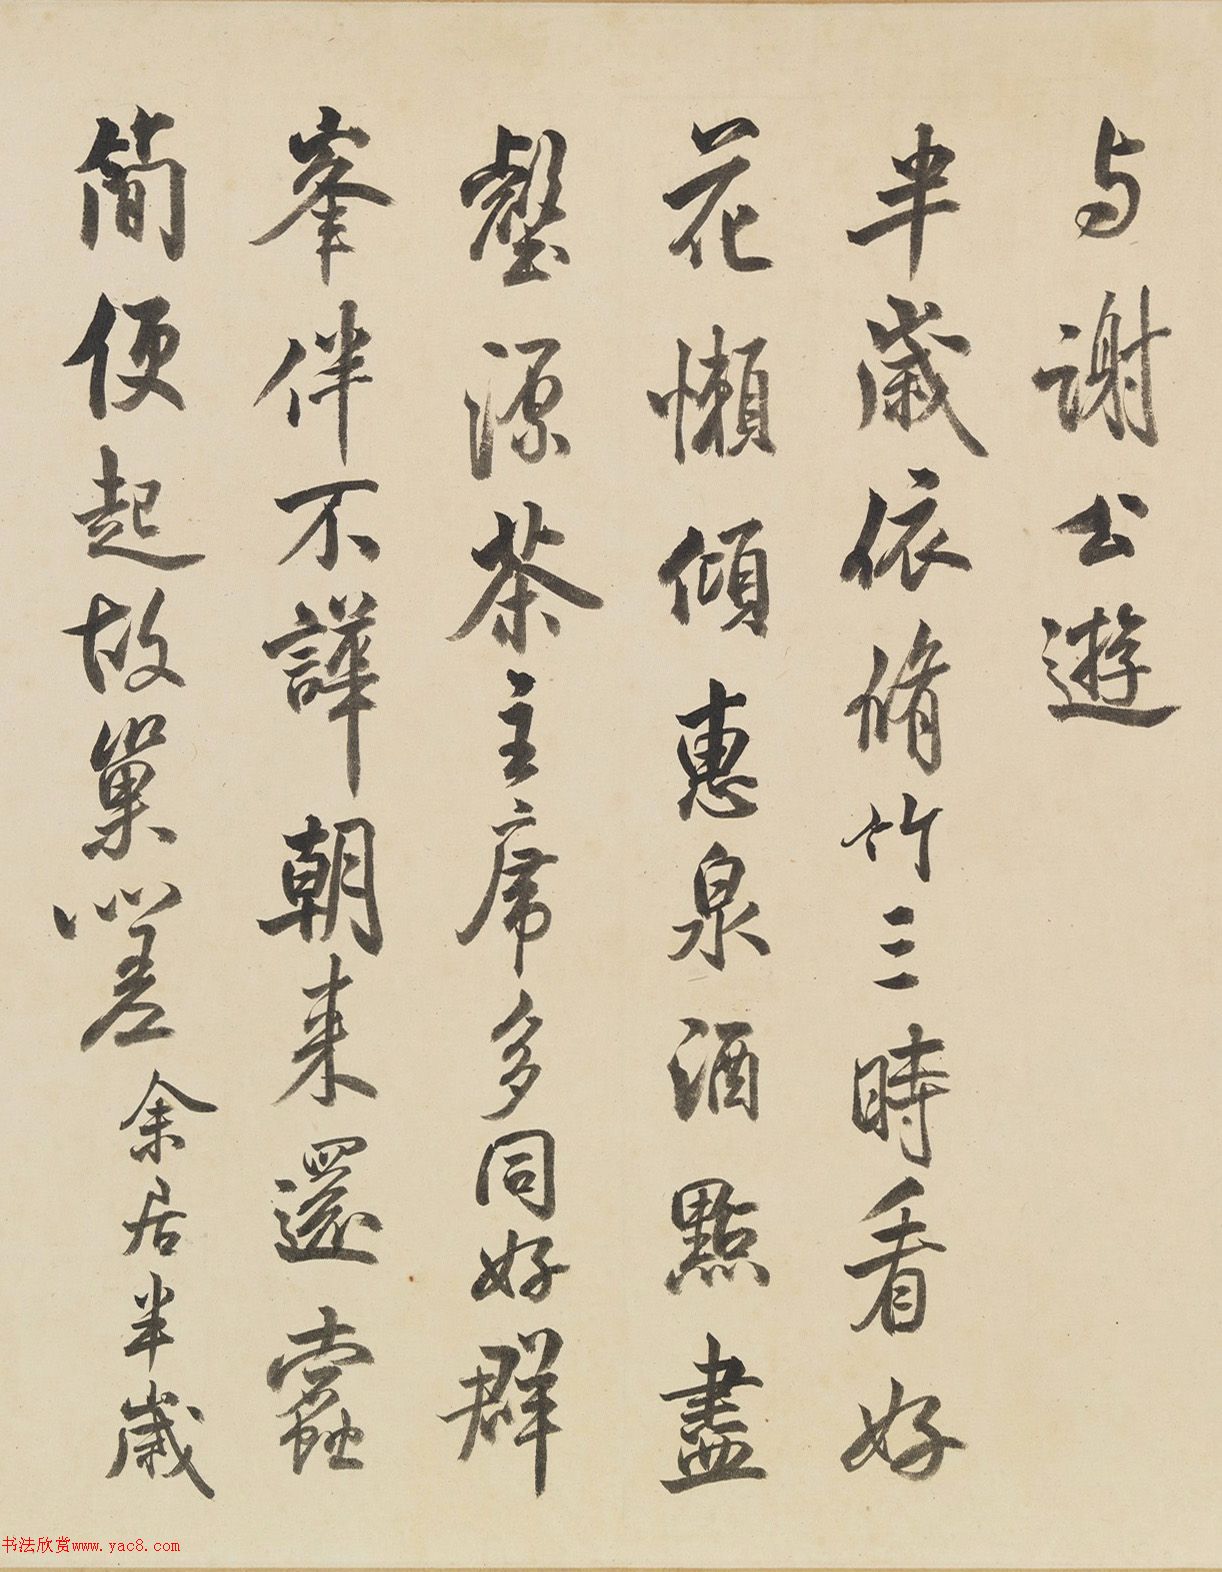 与謝公遊
半歲依脩竹三時看好
花懶傾惠泉酒點盡
壑源茶主席多同好群
峯伴不譁朝来還蠹
簡便起故巢嗟余居半歲
书法欣赏www.yac8.com